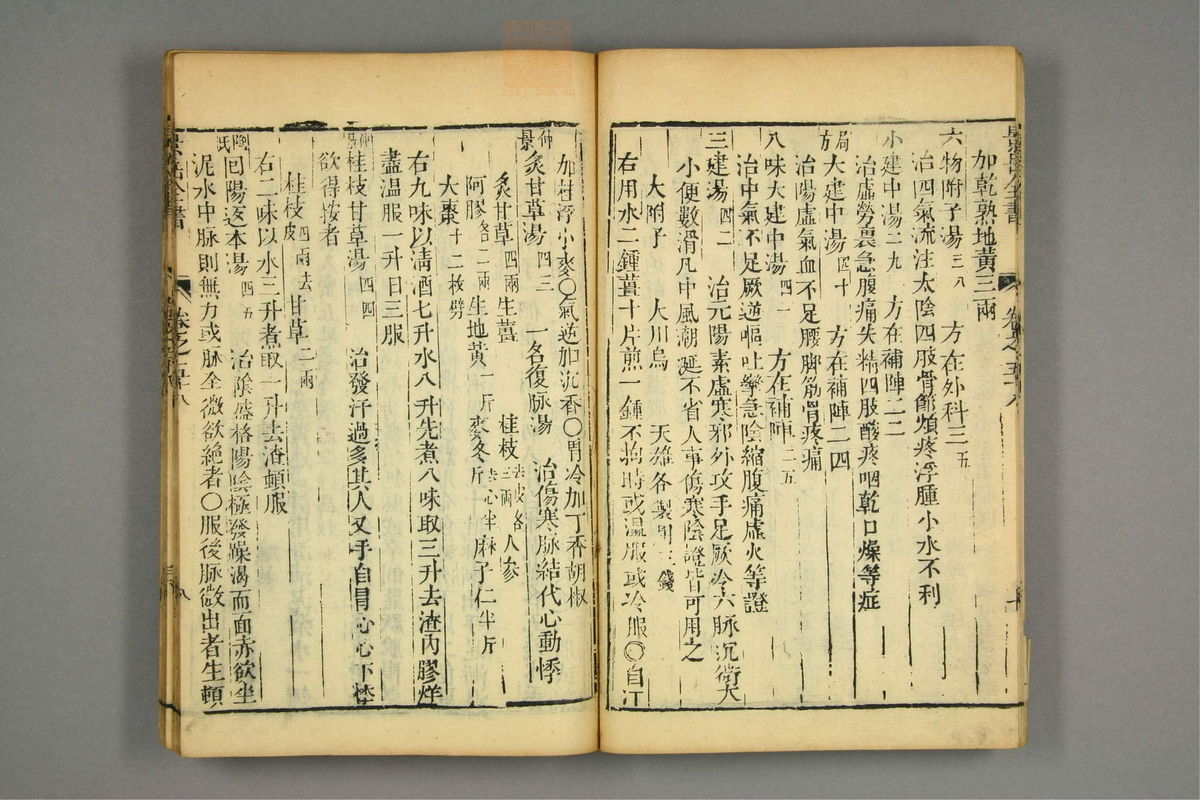 加乾熟地黃三兩
六物附子湯三八 方在外科三五
治四氣流注太陰四肢骨節煩疼浮腫小水不利
小建中湯二九 方在補陣二二
治虛勞裏急腹痛失精四肢酸疼咽乾口燥等症
局方大建中湯四十 方在補陣二四
治陽虛氣血不足腰脚筋骨疼痛
八味大建中湯四一 方在補陣二五
治中氣不足厥逆嘔吐攣急陰縮腹痛虛火等證
三建湯四二 治元陽素虛寒邪外攻手足厥冷六脉沉
小便數滑凡中風潮涎不省人事傷寒陰證皆可用之
大附子 大川烏 天雄各製用三錢
右用水二鍾薑十片煎一鍾不拘時或温服或冷服〇自汗
加桂浮小麥〇氣逆加沉香〇胃冷加丁香胡椒
仲景炙甘草湯四三 一名復脉湯 治傷寒脉結代心動悸
炙甘草四兩 生薑 桂枝去皮各三兩 人參
阿膠各二兩 生地黃一斤 麥冬去心半斤 麻子仁半斤
大棗十二枚擘
右九味以清酒七升水八升先煮八味取三升去渣内膠烊
盡温服一升日三服
仲景桂枝甘草湯四四 治發汗過多其人叉手自冒心心下悸
欲得按者
桂枝四兩去皮 甘草二兩
右二味以水三升煮取一升去渣頓服
陶氏囘陽返本湯四五 治陰盛格陽陰極發躁渴而面赤欲坐
泥水中脉則無力或脉全微欲絶者〇服後脉微出者生頓